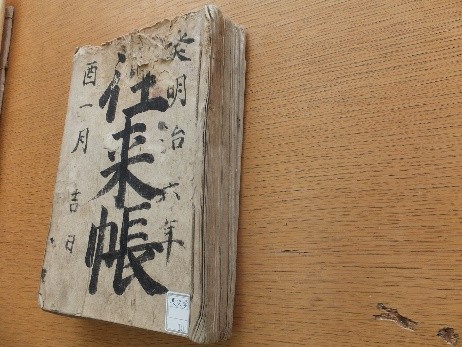 癸明治六年
往来帳
酉一月吉日